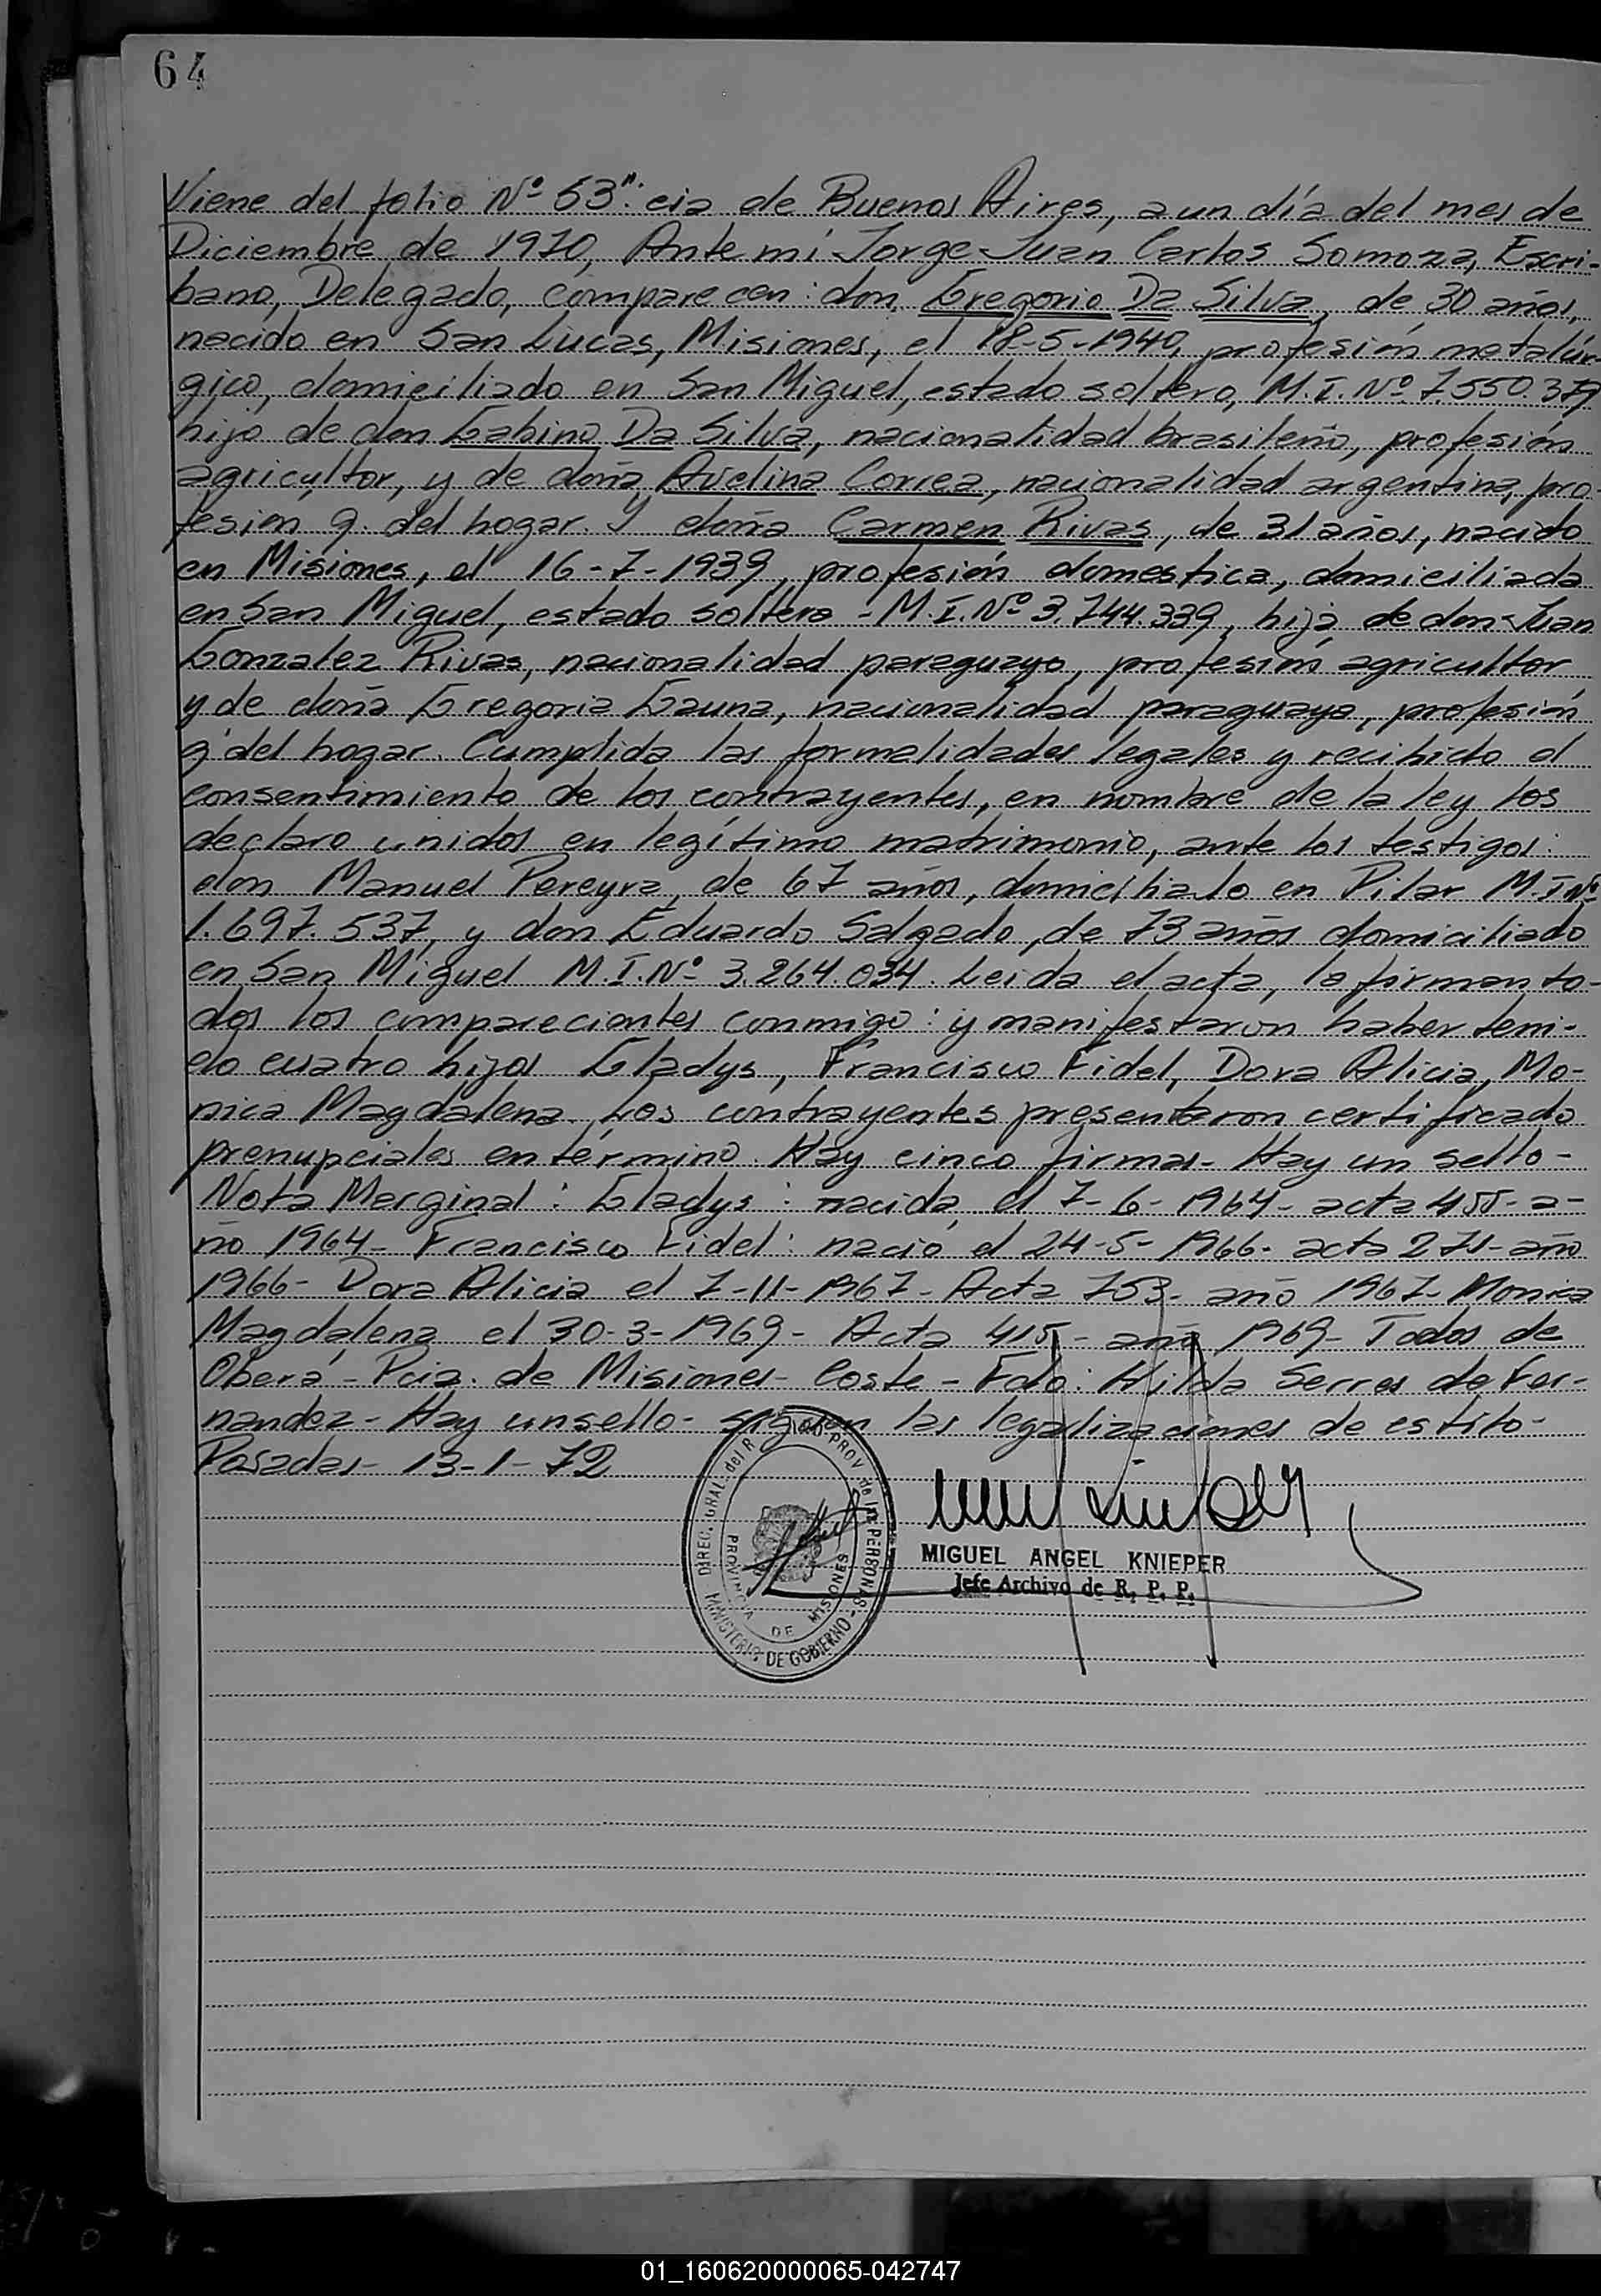 64
Viene del folio Nº 63": cia de Buenos Aires, a un día del mes de
Diciembre de 1970, Ante mi Jorge Juan Carlos Somoza, Escri-
bano, Delegado, comparecen: don Gregorio Da Silva, de 30 años,
nacido en San Lucas, Misiones, el 18-5-1940, profesión metalúr-
gico, domiciliado en San Miguel, estado soltero, M.I.Nº 7.550.379
hijo de don Gabino Da Silva, nacionalidad brasileño, profesión
agricultor, y de doña Avelina Correa, nacionalidad argentina, pro-
fesión q. del hogar. Y doña Carmen Rivas, de 31 años, nacido
en Misiones, el 16-7-1939, profesión domestica, domiciliada
en San Miguel, estado soltera - M.I.Nº 3.744.339, hija de don Juan
Gonzalez Rivas, nacionalidad paraguayo, profesión agricultor
y de doña Gregoria Gauna, nacionalidad paraguaya, profesión
q. del hogar. Cumplida las formalidades legales y recibido el
consentimiento de los contrayentes, en nombre de la ley los
declaro unidos en legítimo matrimonio, ante los testigos:
don Manuel Pereyra, de 67 años, domiciliado en Pilar M.I Nº
1.697.537, y don Eduardo Salgado, de 73 años domiciliado
en San Miguel M.I.Nº 3.264.034. Leida el acta, la firman to-
dos los comparecientes conmigo: y manifestaron haber teni-
do cuatro hijos Gladys, Francisco Fidel, Dora Alicia, Mo-
nica Magdalena. Los contrayentes presentaron certificado
prenupciales en término. Hay cinco firmas- Hay un sello-
Nota Marginal: Gladys: nacida el 7-6-1964- acta 455- a-
ño 1964- Francisco Fidel: nació el 24-5-1966- acta 271- año
1966- Dora Alicia el 7-11-1967- Acta 753- año 1967- Monica
Magdalena el 30-3-1969- Acta 415- año 1969- Todos de
Oberá- Pcia. de Misiones- Coste- Fdo: Hilda Serres de Fer-
nandez- Hay un sello- siguen las legalizaciones de estilo-
Posadas- 13-1-72
DIREC. GRAL. del R PROV. de las PERSONAS
PROVINCIA DE MISIONES
MINISTERIO DE GOBIERNO
MIGUEL ANGEL KNIEPER
Jefe Archivo de R. P. P.
01_160620000065-042747